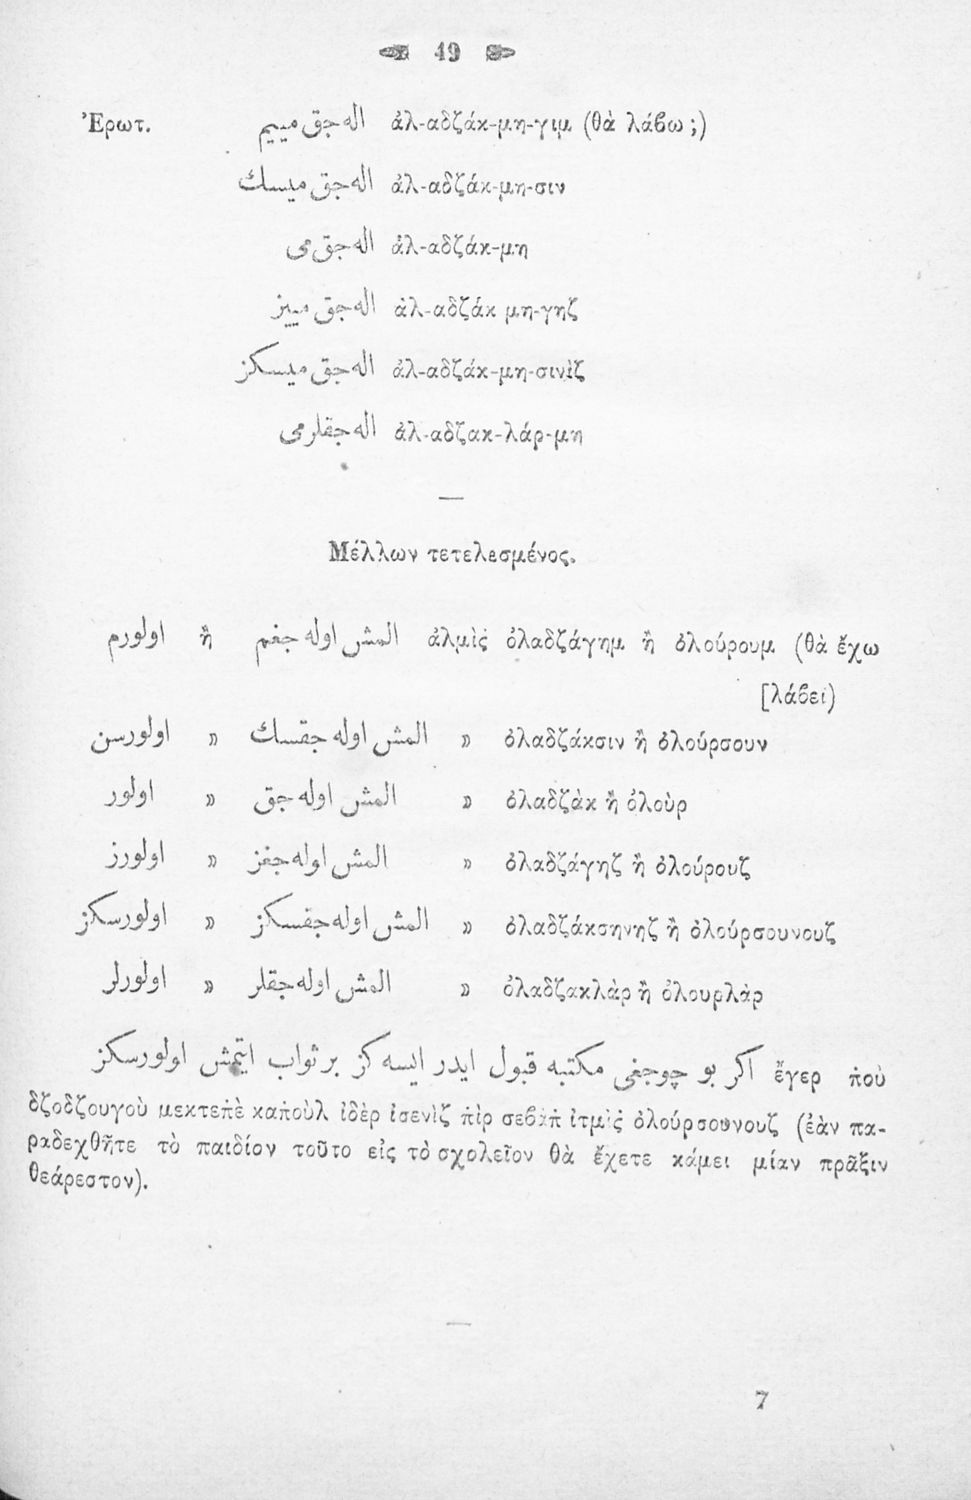 49
Ἐρωτ. اله جق مییم ἀλ-αδζάκ-μη-γιμ (θὰ λάβω ;)
اله جق میسك ἀλ-αδζάκ-μη-σιν
اله جق می ἀλ-αδζάκ-μη
اله جق مییز ἀλ-αδζάκ μη-γηζ
اله جق میسکز ἀλ-αδζάκ-μη-σινὶζ
اله جقلرمی ἀλ-αδζακ-λάρ-μη
Μέλλων τετελεσμένος.
اولورم ἢ المش اوله جغم ἀλμὶς ὀλαδζάγημ ἢ ὀλούρουμ (θὰ ἔχω
[λάβει)
اولورسن » المش اوله جقسك » ὀλαδζάκσιν ἢ ὀλούρσουν
اولور » المش اوله جق » ὀλαδζὰκ ἢ ὀλοὺρ
اولورز » المش اوله جغز » ὀλαδζάγηζ ἢ ὀλούρουζ
اولورسکز » المش اوله جقسکز » ὀλαδζάκσηνηζ ἢ ὀλούρσουνουζ
اولورلر » المش اوله جقلر » ὀλαδζακλὰρ ἢ ὀλουρλὰρ
اکر بو چوجغی مکتبه قبول ایدر ایسه کز بر ثواب ایتمش اولورسکز ἔγερ ṗοὺ
δζοδζουγοὺ μεκτεṗὲ καṗοὺλ ἰδὲρ ἰσενὶζ ṗὶρ σεβὰṗ ἰτμὶς ὀλούρσουνουζ (ἐὰν πα-
ραδεχθῆτε τὸ παιδίον τοῦτο εἰς τὸ σχολεῖον θὰ ἔχετε κάμει μίαν πρᾶξιν
θεάρεστον).
7